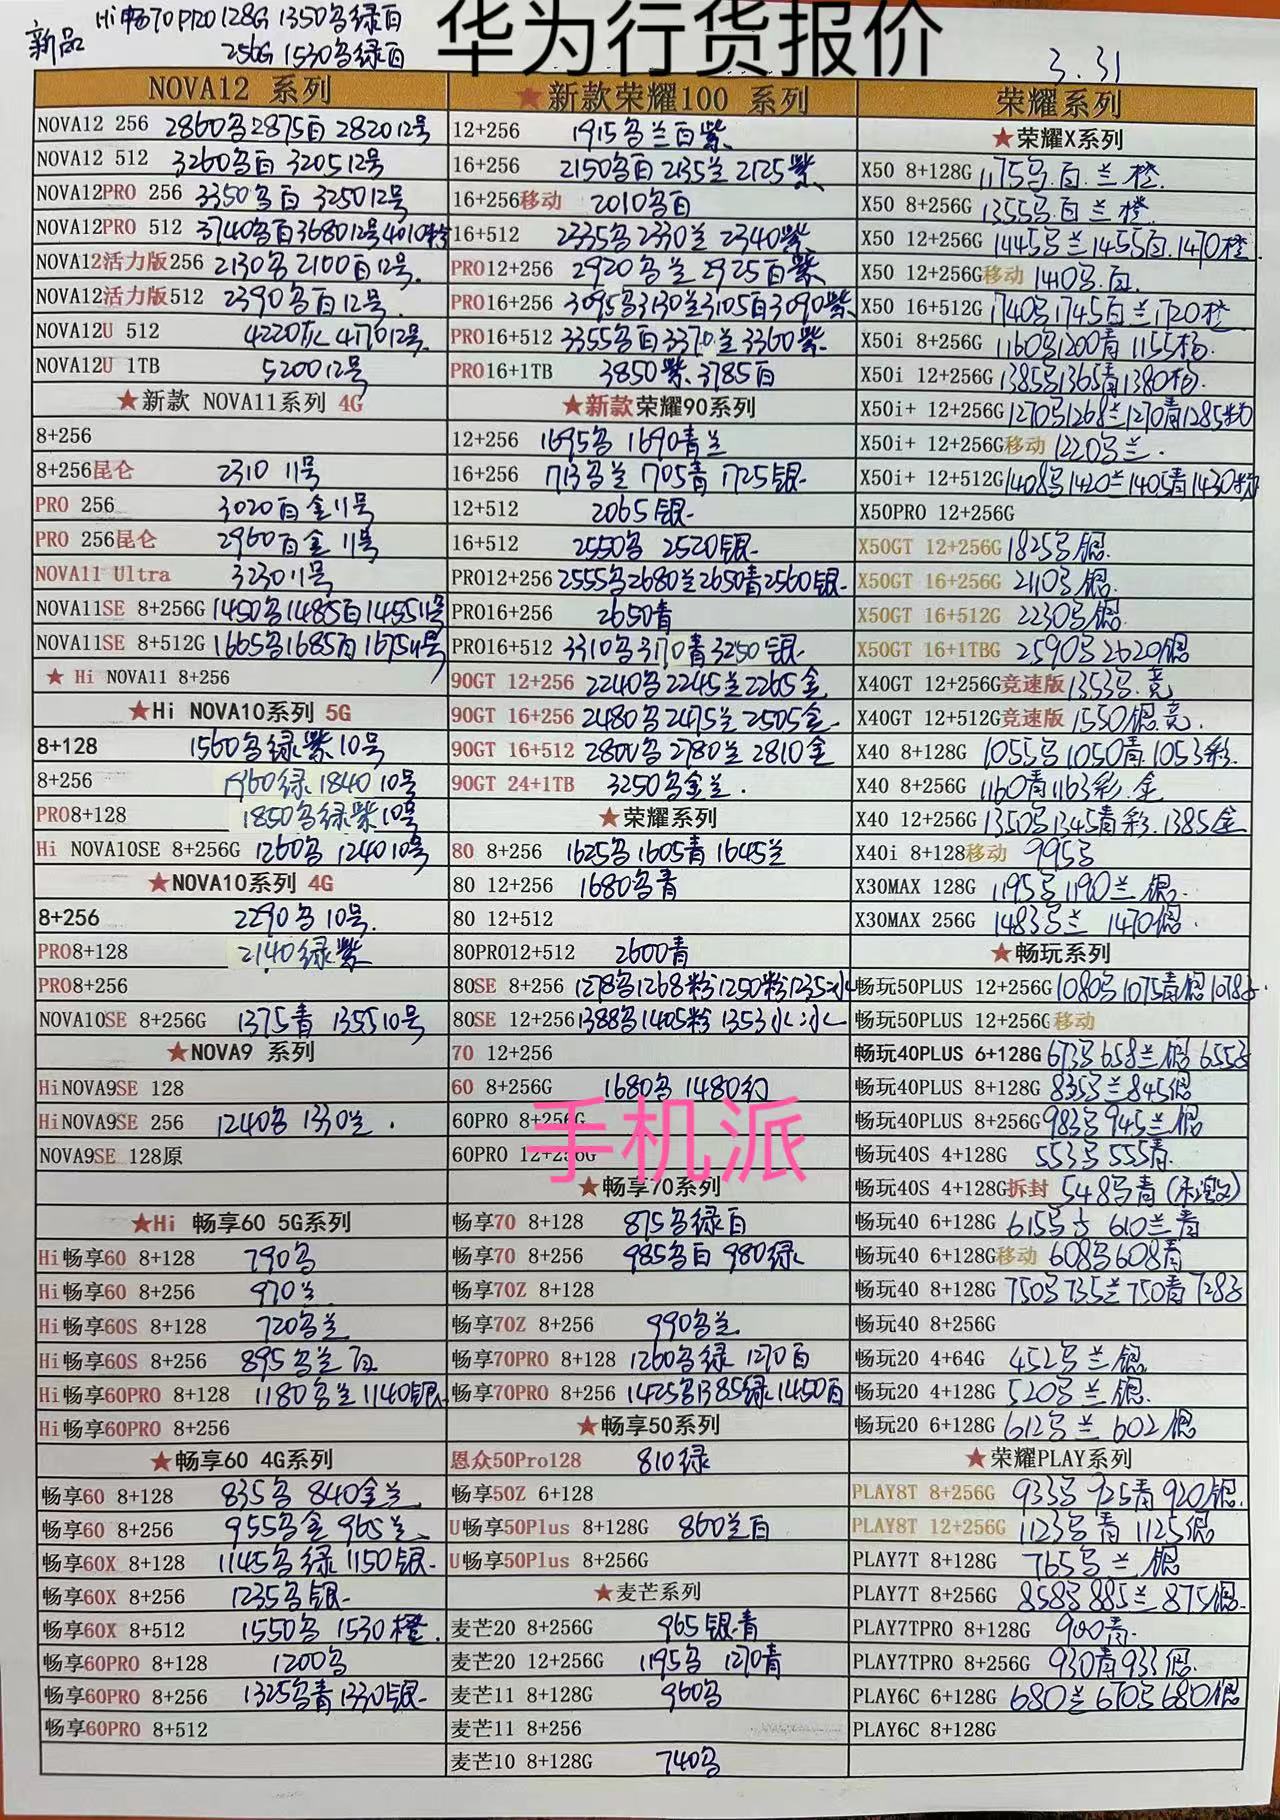 新品 Hi畅70PRO 128G 1350乌绿白
256G 1530乌绿白
华为行货报价
3.31
NOVA12 系列
NOVA12 256 2860乌2875白 2820 12号
NOVA12 512 3260乌白 3205 12号
NOVA12PRO 256 3350乌白 3250 12号
NOVA12PRO 512 3740乌白3680 12号 4010
NOVA12活力版256 2130乌 2100白12号
NOVA12活力版512 2390乌白12号
NOVA12U 512 4220灰 4170 12号
NOVA12U 1TB 5200 12号
★新款 NOVA11系列 4G
8+256
8+256昆仑 2310 11号
PRO 256 3020白金11号
PRO 256昆仑 2960白金 11号
NOVA11 Ultra 3230 11号
NOVA11SE 8+256G 1450乌1485白1455 11号
NOVA11SE 8+512G 1665乌1685白1675 11号
★ Hi NOVA11 8+256
★Hi NOVA10系列 5G
8+128 1560乌绿紫10号
8+256 1960绿 1840 10号
PRO8+128 1850乌绿紫10号
Hi NOVA10SE 8+256G 1260乌 1240 10号
★NOVA10系列 4G
8+256 2290乌 10号
PRO8+128 2140绿紫
PRO8+256
NOVA10SE 8+256G 1375青 1355 10号
★NOVA9 系列
HiNOVA9SE 128
HiNOVA9SE 256 1240乌 1330兰
NOVA9SE 128原
★Hi 畅享60 5G系列
Hi畅享60 8+128 790乌
Hi畅享60 8+256 970兰
Hi畅享60S 8+128 720乌兰
Hi畅享60S 8+256 895乌兰白
Hi畅享60PRO 8+128 1180乌兰1140银
Hi畅享60PRO 8+256
★畅享60 4G系列
畅享60 8+128 835乌 840金兰
畅享60 8+256 955乌金 965兰
畅享60X 8+128 1145乌绿 1150银
畅享60X 8+256 1235乌银
畅享60X 8+512 1550乌 1530橙
畅享60PRO 8+128 1200乌
畅享60PRO 8+256 1325乌青1330银
畅享60PRO 8+512
★新款荣耀100 系列
12+256 1915乌兰白紫
16+256 2150乌白 2135兰 2125紫
16+256移动 2010乌白
16+512 2335乌 2330兰 2340紫
PRO12+256 2920乌兰 2925白紫
PRO16+256 3095乌3130兰3105白3090紫
PRO16+512 3355乌白3370兰 3360紫
PRO16+1TB 3850紫 3785白
★新款荣耀90系列
12+256 1695乌 1690青兰
16+256 1713乌兰 1705青 1725银
12+512 2065银
16+512 2550乌 2520银
PRO12+256 2555乌2680兰2650青2560银
PRO16+256 2650青
PRO16+512 3310乌3170青3250银
90GT 12+256 2240乌2245兰2265金
90GT 16+256 2480乌 2475兰 2505金
90GT 16+512 2800乌 2780兰 2810金
90GT 24+1TB 3250乌金兰
★荣耀系列
80 8+256 1625乌1605青 1645兰
80 12+256 1680乌青
80 12+512
80PRO12+512 2600青
80SE 8+256 1278乌1268粉1250粉1235冰
80SE 12+256 1388乌1405粉 1353冰
70 12+256
60 8+256G 1680乌 1480幻
60PRO 8+256G
60PRO 12+256G
手机派
★畅享70系列
畅享70 8+128 875乌绿白
畅享70 8+256 985乌白 980绿
畅享70Z 8+128
畅享70Z 8+256 990乌兰
畅享70PRO 8+128 1260乌绿 1270白
畅享70PRO 8+256 1425乌1385绿1450白
★畅享50系列
恩众50Pro128 810绿
畅享50Z 6+128
U畅享50Plus 8+128G 860兰白
U畅享50Plus 8+256G
★麦芒系列
麦芒20 8+256G 965银青
麦芒20 12+256G 1195乌 1270青
麦芒11 8+128G 960乌
麦芒11 8+256
麦芒10 8+128G 740乌
荣耀系列
★荣耀X系列
X50 8+128G 1175乌.白.兰 橙
X50 8+256G 1355乌.白 兰橙
X50 12+256G 1445乌兰1455白.1470橙
X50 12+256G移动 1410乌.白
X50 16+512G 1740乌1745白兰1720橙
X50i 8+256G 1160乌1200青 1155杨
X50i 12+256G 1385乌1365青1380杨
X50i+ 12+256G 1270乌1268兰1270青1285粉
X50i+ 12+256G移动 1220乌兰
X50i+ 12+512G 1408乌1420兰1405青1430粉
X50PRO 12+256G
X50GT 12+256G 1825乌银
X50GT 16+256G 2110乌银
X50GT 16+512G 2230乌银
X50GT 16+1TBG 2590乌2620银
X40GT 12+256G竞速版 1353乌.竞
X40GT 12+512G竞速版 1550银竞
X40 8+128G 1055乌1050青1053彩
X40 8+256G 1160青1163彩.金
X40 12+256G 1350乌1345青彩.1385金
X40i 8+128移动 995乌
X30MAX 128G 1195乌1190兰.银
X30MAX 256G 1483乌兰 1470银
★畅玩系列
畅玩50PLUS 12+256G 1080乌1075青银1078
畅玩50PLUS 12+256G移动
畅玩40PLUS 6+128G 673乌658兰银 655
畅玩40PLUS 8+128G 835乌兰845银
畅玩40PLUS 8+256G 983乌945兰银
畅玩40S 4+128G 553乌555青
畅玩40S 4+128G拆封 548乌青(未激活)
畅玩40 6+128G 615乌 610兰青
畅玩40 6+128G移动 608乌608青
畅玩40 8+128G 750乌735兰750青728
畅玩40 8+256G
畅玩20 4+64G 452乌兰银
畅玩20 4+128G 520乌兰银
畅玩20 6+128G 612乌兰 602银
★荣耀PLAY系列
PLAY8T 8+256G 933乌 925青 920银
PLAY8T 12+256G 1123乌青 1125银
PLAY7T 8+128G 765乌兰.银
PLAY7T 8+256G 858乌885兰875银
PLAY7TPRO 8+128G 900青
PLAY7TPRO 8+256G 930青933银
PLAY6C 6+128G 680兰670乌680银
PLAY6C 8+128G